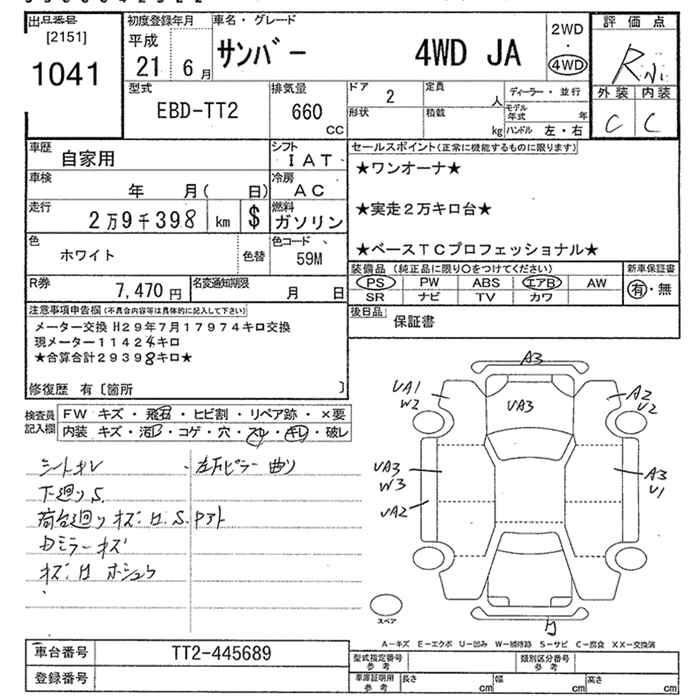 出品番号
[2151]
1041
初度登録年月
平成
21 6月
車名・グレード
サンバー 4WD JA
2WD
・
4WD
評価点
R
外装 内装
C C
型式
EBD-TT2
排気量
660
CC
ドア 2
定員 人
ディーラー・並行
形状
積載 kg
モデル年式 年
ハンドル 左・右
車歴 自家用
シフト
IAT
車検 年 月( 日)
冷房
AC
走行 2万9千398 km $
燃料
ガソリン
色 ホワイト 色替
色コード
59M
R券 7,470円
名変通知期限 月 日
セールスポイント(正常に機能するものに限ります)
★ワンオーナ★
★実走2万キロ台★
★ベースTCプロフェッショナル★
装備品 (純正品に限り○をつけてください)
PS PW ABS エアB AW
SR ナビ TV カワ
新車保証書
有・無
後日品 保証書
注意事項申告欄(不具合内容等は具体的に記入して下さい)
メーター交換 H29年7月17974キロ交換
現メーター11424キロ
★合算合計29398キロ★
修復歴 有〔箇所 〕
検査員
記入欄
FW キズ・飛石・ヒビ割・リペア跡・×要
内装 キズ・汚れ・コゲ・穴・スレ・キレ・破レ
シートキレ
・左Bピラー曲り
下廻りS
荷台廻りキズ・凹.S.
ドミラーキズ
キズ・凹 ホシュウ
A3
UA1
W2
UA3
A2
U2
UA3
W3
UA2
A3
U1
スペア
A－キズ E－エクボ U－凹み W－補修跡 S－サビ C－腐食 XX－交換済
車台番号 TT2-445689
登録番号
型式指定番号
参考
類別区分番号
参考
車庫証明用
参考
長さ cm 幅 cm 高さ cm